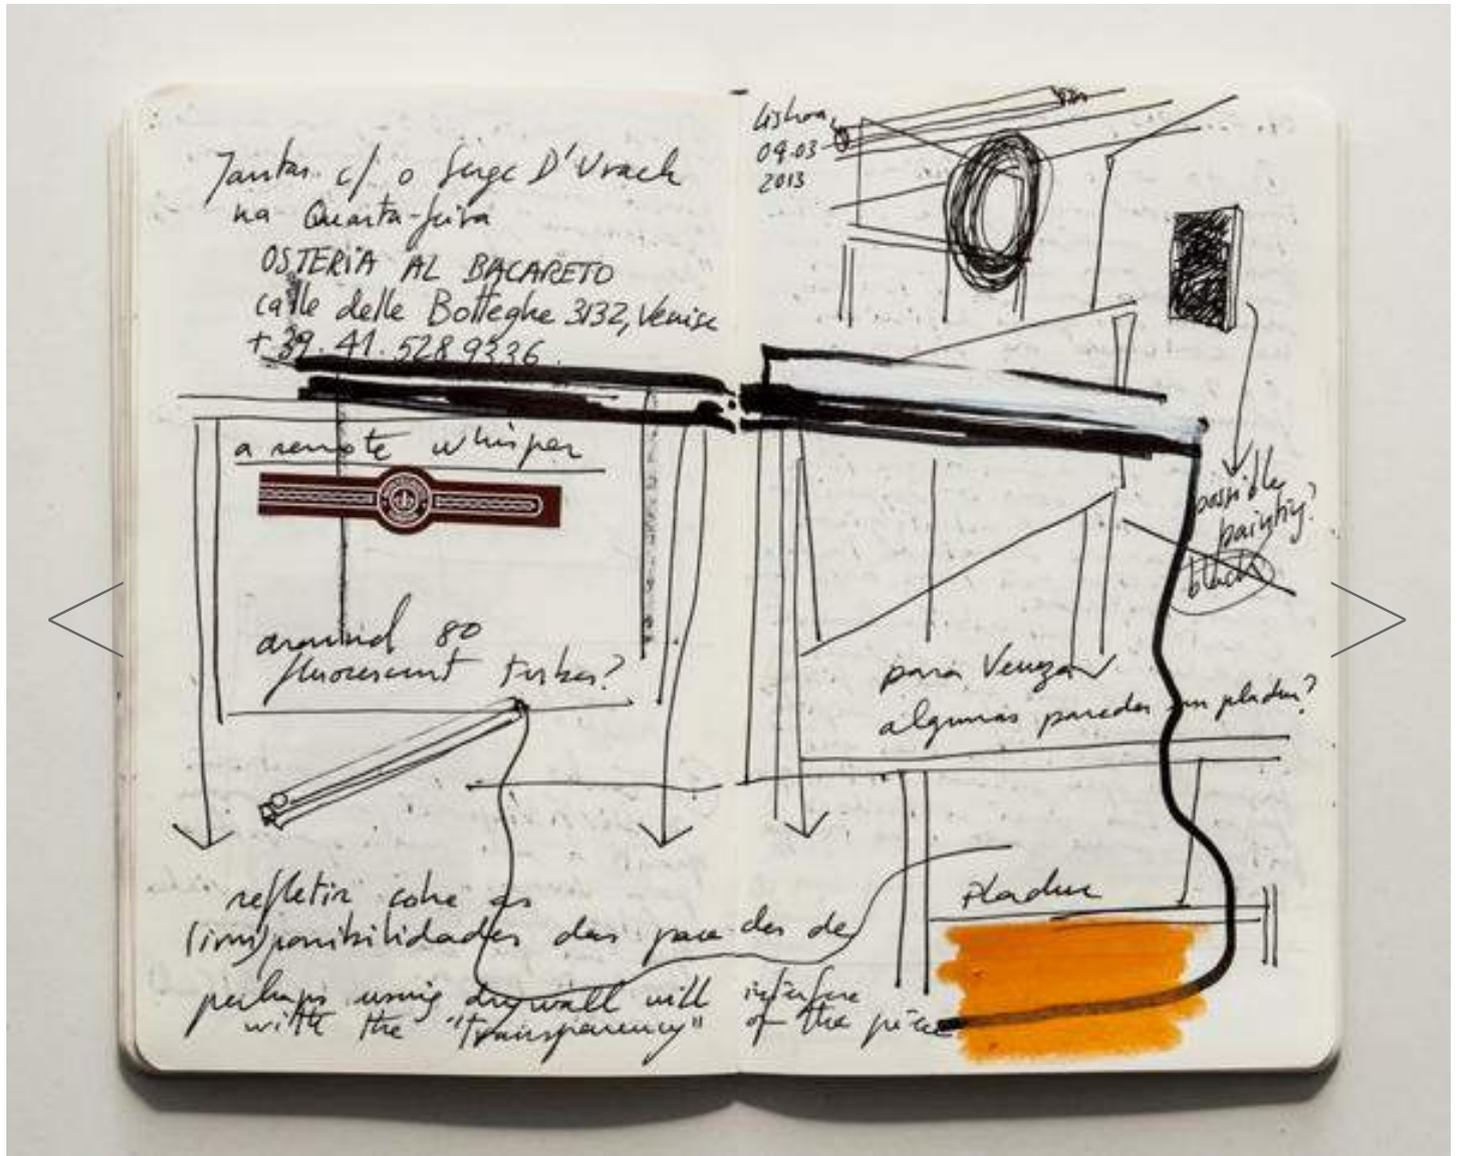 Jantar c/ o Serge D'Urach
na Quarta-feira
OSTERIA AL BACARETO
calle delle Botteghe 3132, Venise
+ 39. 41. 528 9336.
a remote whisper
around 80
fluorescent tubes?
refletir sobre as
(im)possibilidades das paredes de
perhaps using drywall will interfere
with the "transparency" of the piece
Lisboa,
09.03
2013
possible
painting?
black
para Veneza
algumas paredes em pladur?
Pladur